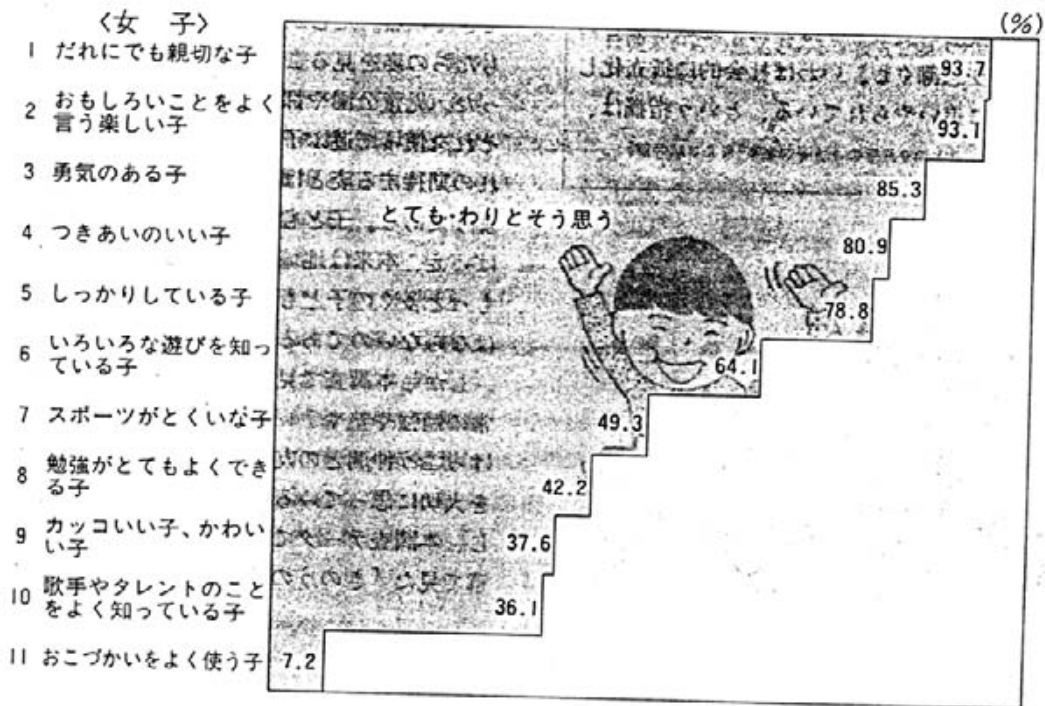 〈女 子〉
(%)
1 だれにでも親切な子 93.7
2 おもしろいことをよく
言う楽しい子 93.1
3 勇気のある子 85.3
とても・わりとそう思う
4 つきあいのいい子 80.9
5 しっかりしている子 78.8
6 いろいろな遊びを知っ
ている子 64.1
7 スポーツがとくいな子 49.3
8 勉強がとてもよくでき
る子 42.2
9 カッコいい子、かわい
い子 37.6
10 歌手やタレントのこと
をよく知っている子 36.1
11 おこづかいをよく使う子 7.2